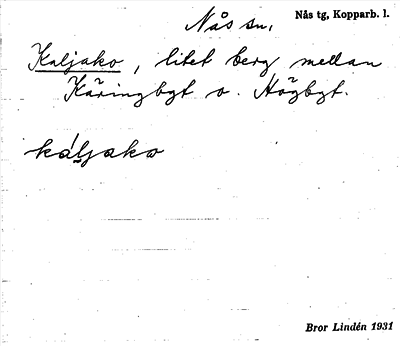 Nås sn.
Nås tg, Kopparb. l.
Kaljako, litet berg mellan
Käringbgt o. Högbgt.
káljako
Bror Lindén 1931